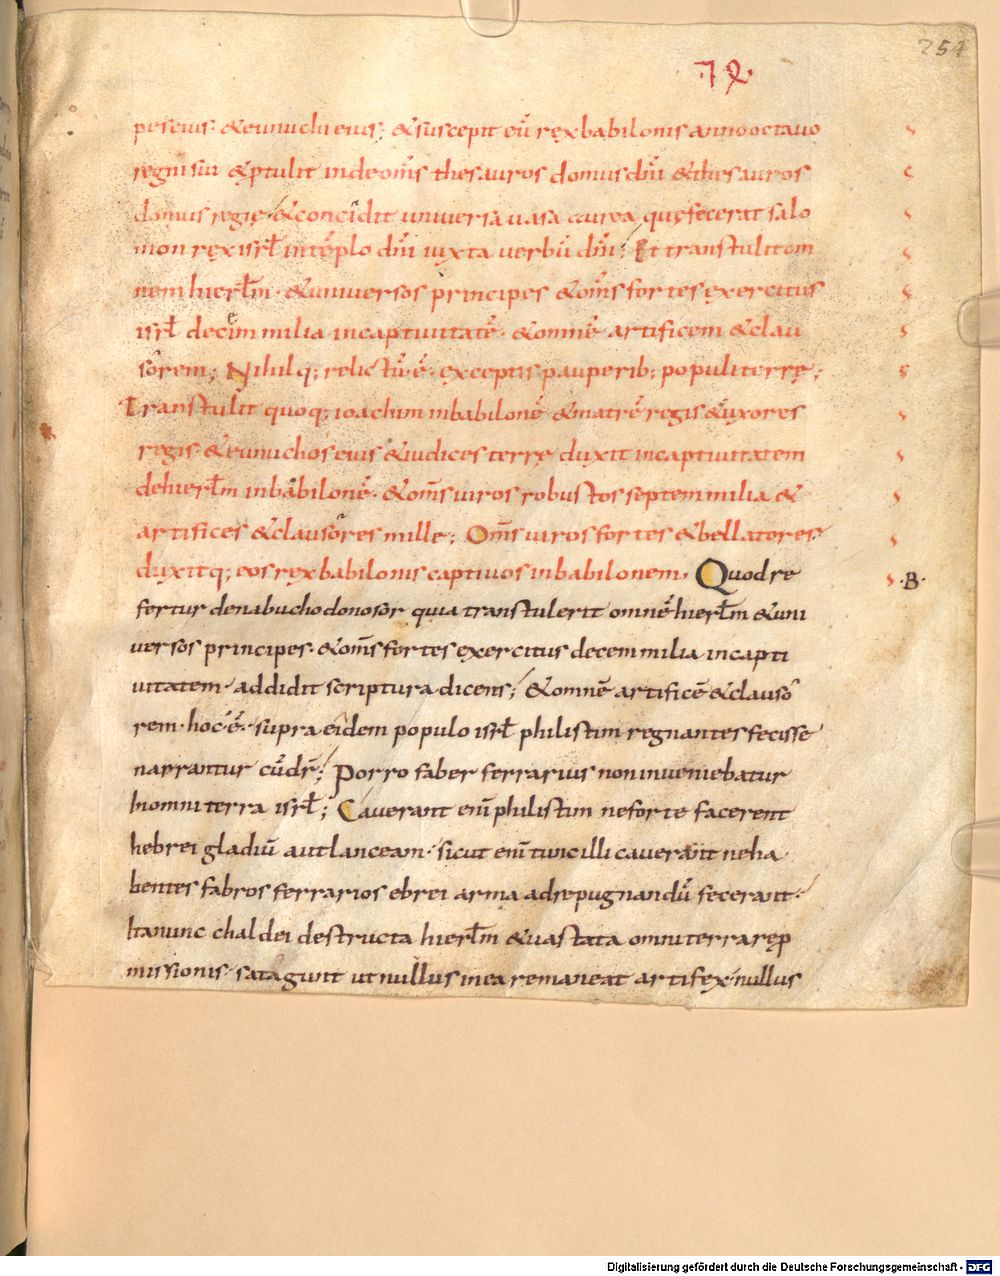 254
pes eius · & eunuchi eius ; & suscepit eũ rex babilonis anno octauo
regni sui & ptulit inde om̃s thesauros domus dñi & thesauros
domus regię · & concidit uniuersa uasa aurea quę fecerat salo
mon rex isrł in tẽplo dñi iuxta uerbũ dñi ; Et transtulit om
nem hierłm · & uniuersos principes & om̃s fortes exercitus
isrł decem milia in captiuitatẽ · & omnẽ artificem & clau
sorem ; Nihilq; relictũ ẽ · exceptis pauperib; populi terrę ;
Transtulit quoq; ioachim in babilonẽ & matrẽ regis & uxores
regis & eunuchos eius & iudices terrę duxit in captiuitatem
de hierłm in babilonẽ · & om̃s uiros robustos septem milia &
artifices & clausores mille ; Om̃s uiros fortes & bellatores
duxitq; eos rex babilonis captiuos in babilonem . Quod re ·B·
fertur de nabuchodonosor quia transtulerit omnẽ hierłm & uni
uersos principes · & om̃s fortes exercitus decem milia in capti
uitatem · addidit scriptura dicens ; & omnẽ artificẽ & clauso
rem · hoc ẽ · supra eidem populo isrł philistim regnantes fecisse
narrantur cũ dr̃ ; Porro faber ferrarius non inueniebatur
In omni terra isrł ; Cauerant enĩ philistim ne forte facerent
hebrei gladiũ aut lanceam · sicut enĩ tunc illi cauerant ne ha
bentes fabros ferrarios ebrei arma ad repugnandũ fecerant ·
Ita nunc chaldei destructa hierłm & uastata omni terra rep
missionis · satagunt ut nullus in ea remaneat artifex · nullus
Digitalisierung gefördert durch die Deutsche Forschungsgemeinschaft - DFG